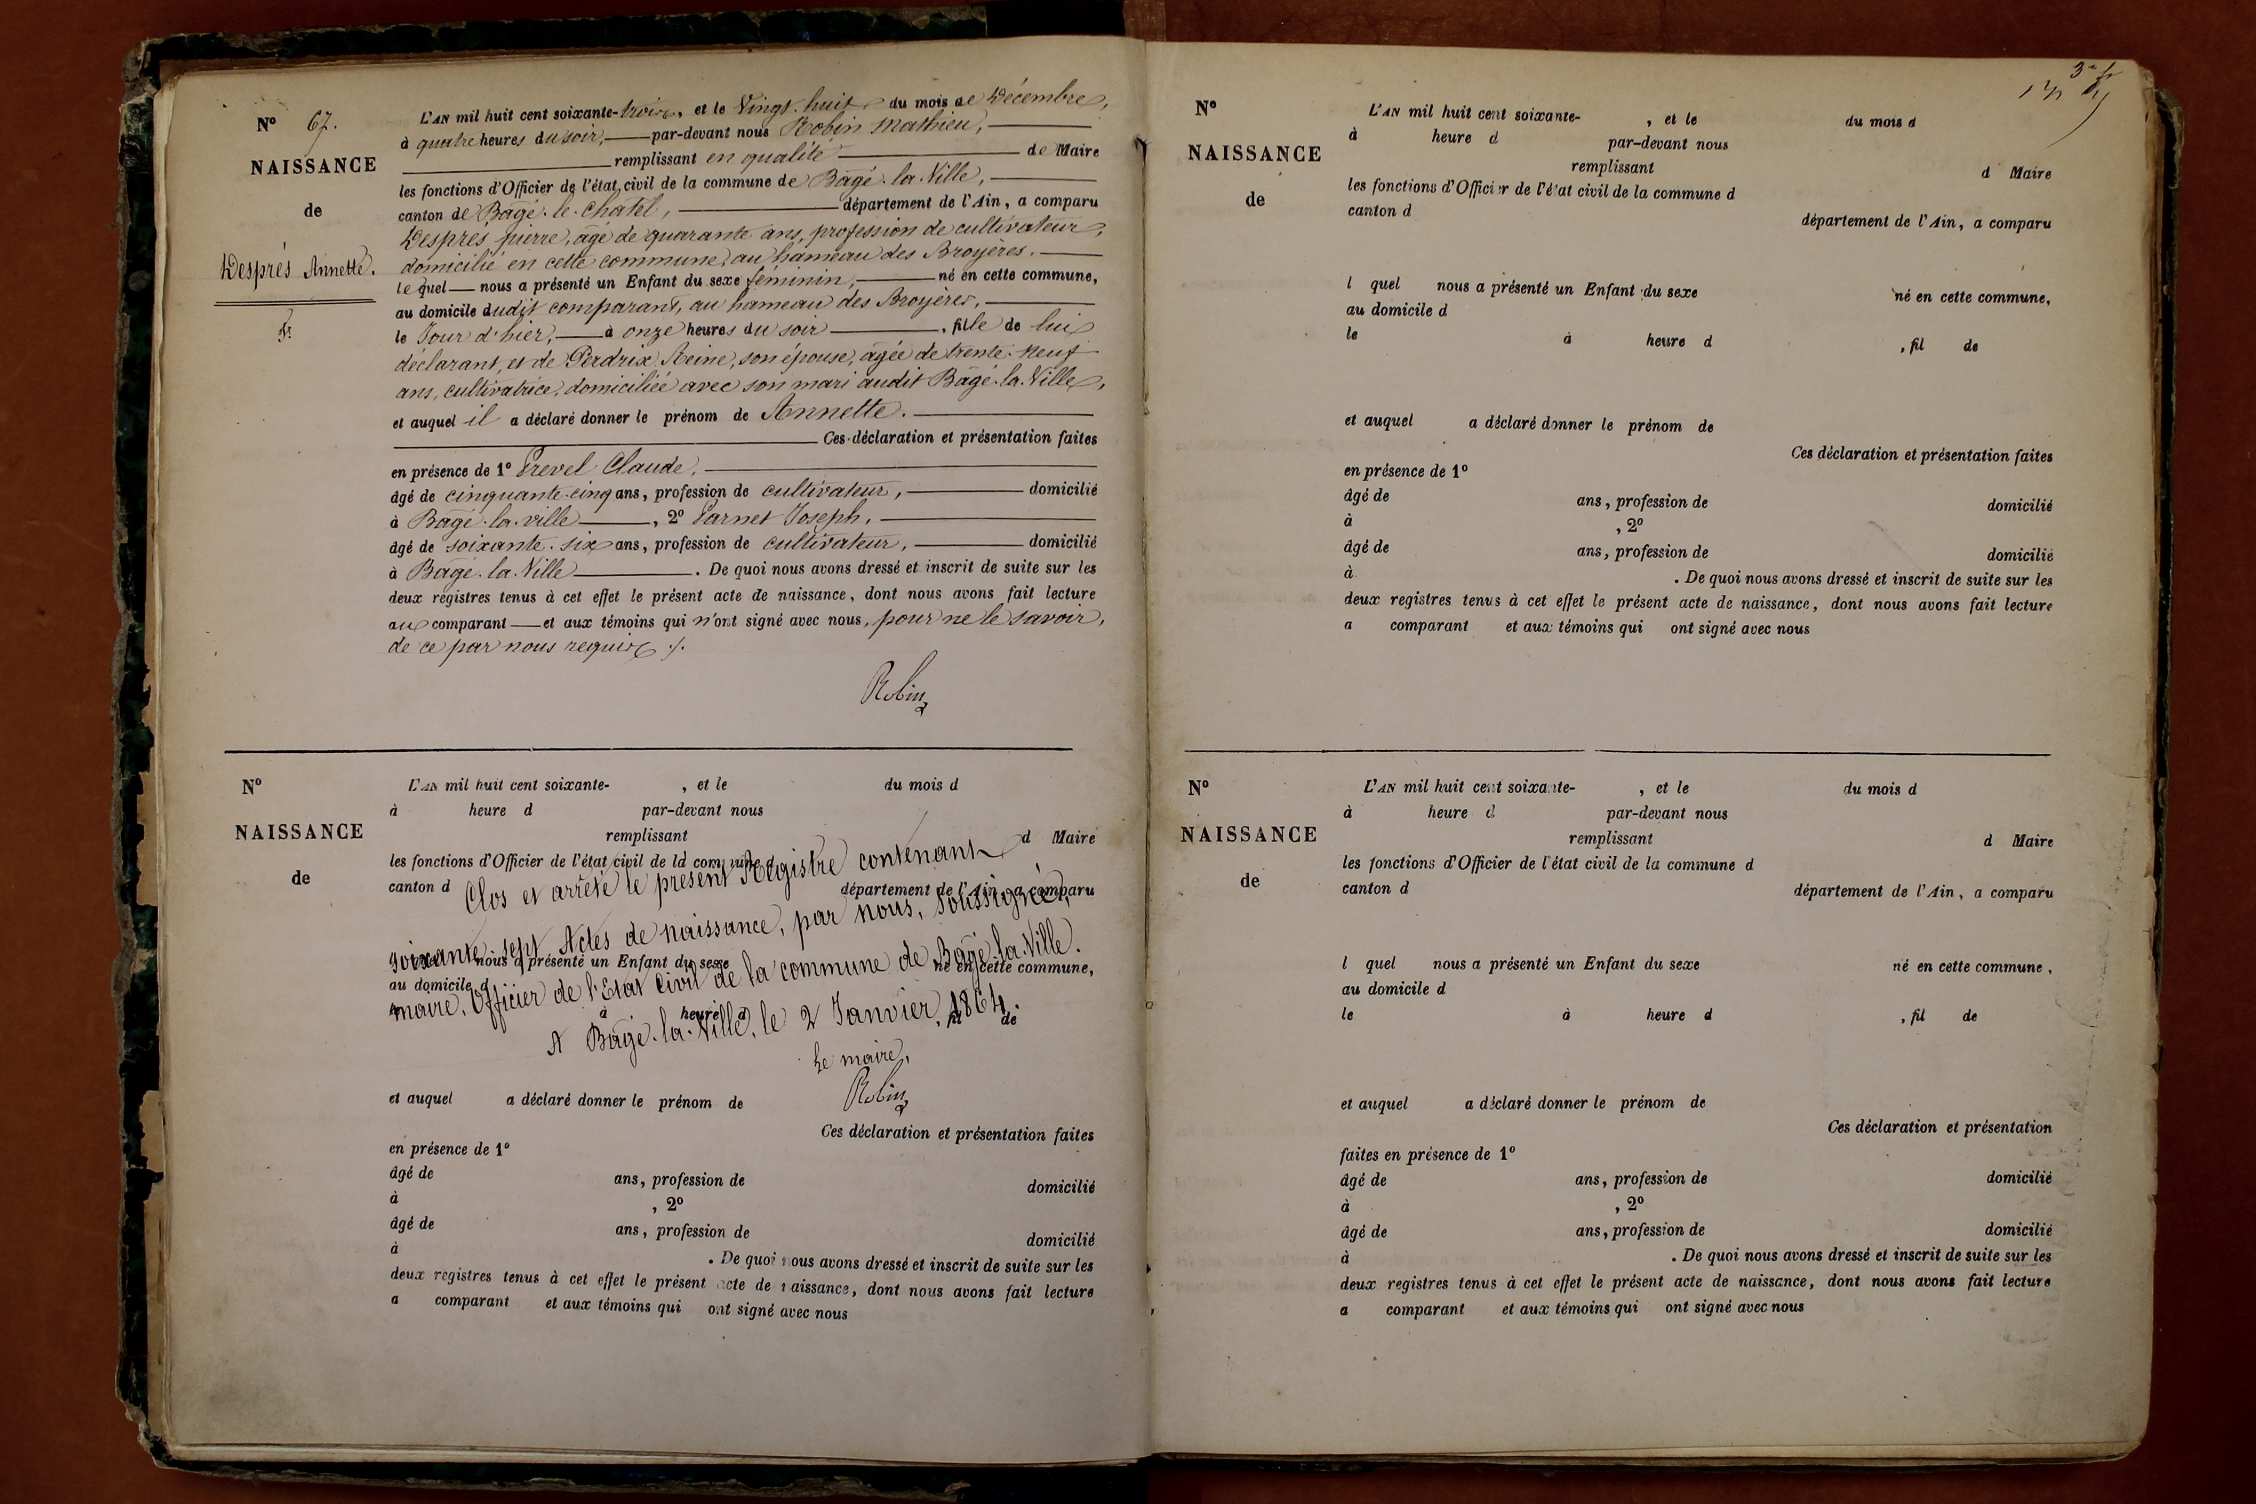 N° 67.
NAISSANCE
de
Després Annette.
L'AN mil huit cent soixante-trois, et le Vingt-huit du mois de Décembre,
à quatre heures du soir, par-devant nous Robin Mathieu,
remplissant en qualité de Maire
les fonctions d'Officier de l'état civil de la commune de Bâgé-la-Ville,
canton de Bâgé-le-Châtel, département de l'Ain, a comparu
Després pierre, âgé de quarante ans, profession de cultivateur,
domicilié en cette commune, au hameau des Broyères.
lequel nous a présenté un Enfant du sexe féminin, né en cette commune,
au domicile dudit comparant, au hameau des Broyères,
le Jour d'hier, à onze heures du soir, fille de lui
déclarant, et de Perdrix Reine, son épouse, âgée de trente-neuf
ans, cultivatrice, domiciliée avec son mari audit Bâgé-la-Ville,
et auquel il a déclaré donner le prénom de Annette.
Ces déclaration et présentation faites
en présence de 1° Prevel Claude,
âgé de cinquante-cinq ans, profession de cultivateur, domicilié
à Bâgé-la-ville, 2° Parnet Joseph,
âgé de soixante-six ans, profession de cultivateur, domicilié
à Bâgé-la-Ville. De quoi nous avons dressé et inscrit de suite sur les
deux registres tenus à cet effet le présent acte de naissance, dont nous avons fait lecture
au comparant et aux témoins qui n'ont signé avec nous, pour ne le savoir,
de ce par nous requis ./.
Robin
N°
NAISSANCE
de
L'AN mil huit cent soixante- , et le du mois d
à heure d par-devant nous
remplissant d Maire
les fonctions d'Officier de l'état civil de la commune d
canton d département de l'Ain, a comparu
Clos et arrêté le présent Registre contenant
soixante-sept Actes de naissance, par nous, soussigné,
nous a présenté un Enfant du sexe né en cette commune,
au domicile d
maire, Officier de l'Etat Civil de la commune de Bâgé-la-Ville.
à heure d , fil de
A Bâgé-la-Ville, le 2 Janvier 1864.
Le maire,
Robin
et auquel a déclaré donner le prénom de
Ces déclaration et présentation faites
en présence de 1°
âgé de ans, profession de domicilié
à , 2°
âgé de ans, profession de domicilié
à . De quoi nous avons dressé et inscrit de suite sur les
deux registres tenus à cet effet le présent acte de naissance, dont nous avons fait lecture
a comparant et aux témoins qui ont signé avec nous
N°
NAISSANCE
de
L'AN mil huit cent soixante- , et le du mois d
à heure d par-devant nous
remplissant d Maire
les fonctions d'Officier de l'état civil de la commune d
canton d
département de l'Ain, a comparu
l quel nous a présenté un Enfant du sexe né en cette commune,
au domicile d
le à heure d , fil de
et auquel a déclaré donner le prénom de
Ces déclaration et présentation faites
en présence de 1°
âgé de ans, profession de domicilié
à , 2°
âgé de ans, profession de domicilié
à . De quoi nous avons dressé et inscrit de suite sur les
deux registres tenus à cet effet le présent acte de naissance, dont nous avons fait lecture
a comparant et aux témoins qui ont signé avec nous
N°
NAISSANCE
de
L'AN mil huit cent soixante- , et le du mois d
à heure d par-devant nous
remplissant d Maire
les fonctions d'Officier de l'état civil de la commune d
canton d département de l'Ain, a comparu
l quel nous a présenté un Enfant du sexe né en cette commune,
au domicile d
le à heure d , fil de
et auquel a déclaré donner le prénom de
Ces déclaration et présentation
faites en présence de 1°
âgé de ans, profession de domicilié
à , 2°
âgé de ans, profession de domicilié
à . De quoi nous avons dressé et inscrit de suite sur les
deux registres tenus à cet effet le présent acte de naissance, dont nous avons fait lecture
a comparant et aux témoins qui ont signé avec nous